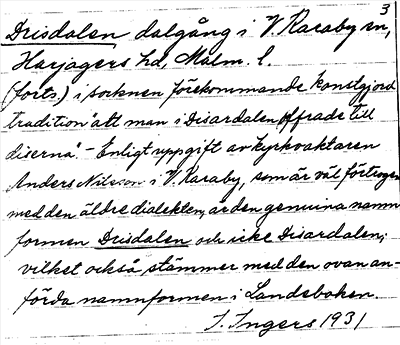 3
Drisdalen dalgång i V. Karaby sn,
Harjagers hd, Malm. l.
(forts.) i socknen förekommande konstgjord
tradition "att man i Disardalen offrade till
diserna". - Enligt uppgift av kyrkvaktaren
Anders Nilsson i V. Karaby, som är väl förtrogen
med den äldre dialekten, är den genuina namn
formen Drisdalen och icke Disardalen,
vilket också stämmer med den ovan an-
förda namnformen i Landeboken.
I. Ingers 1931